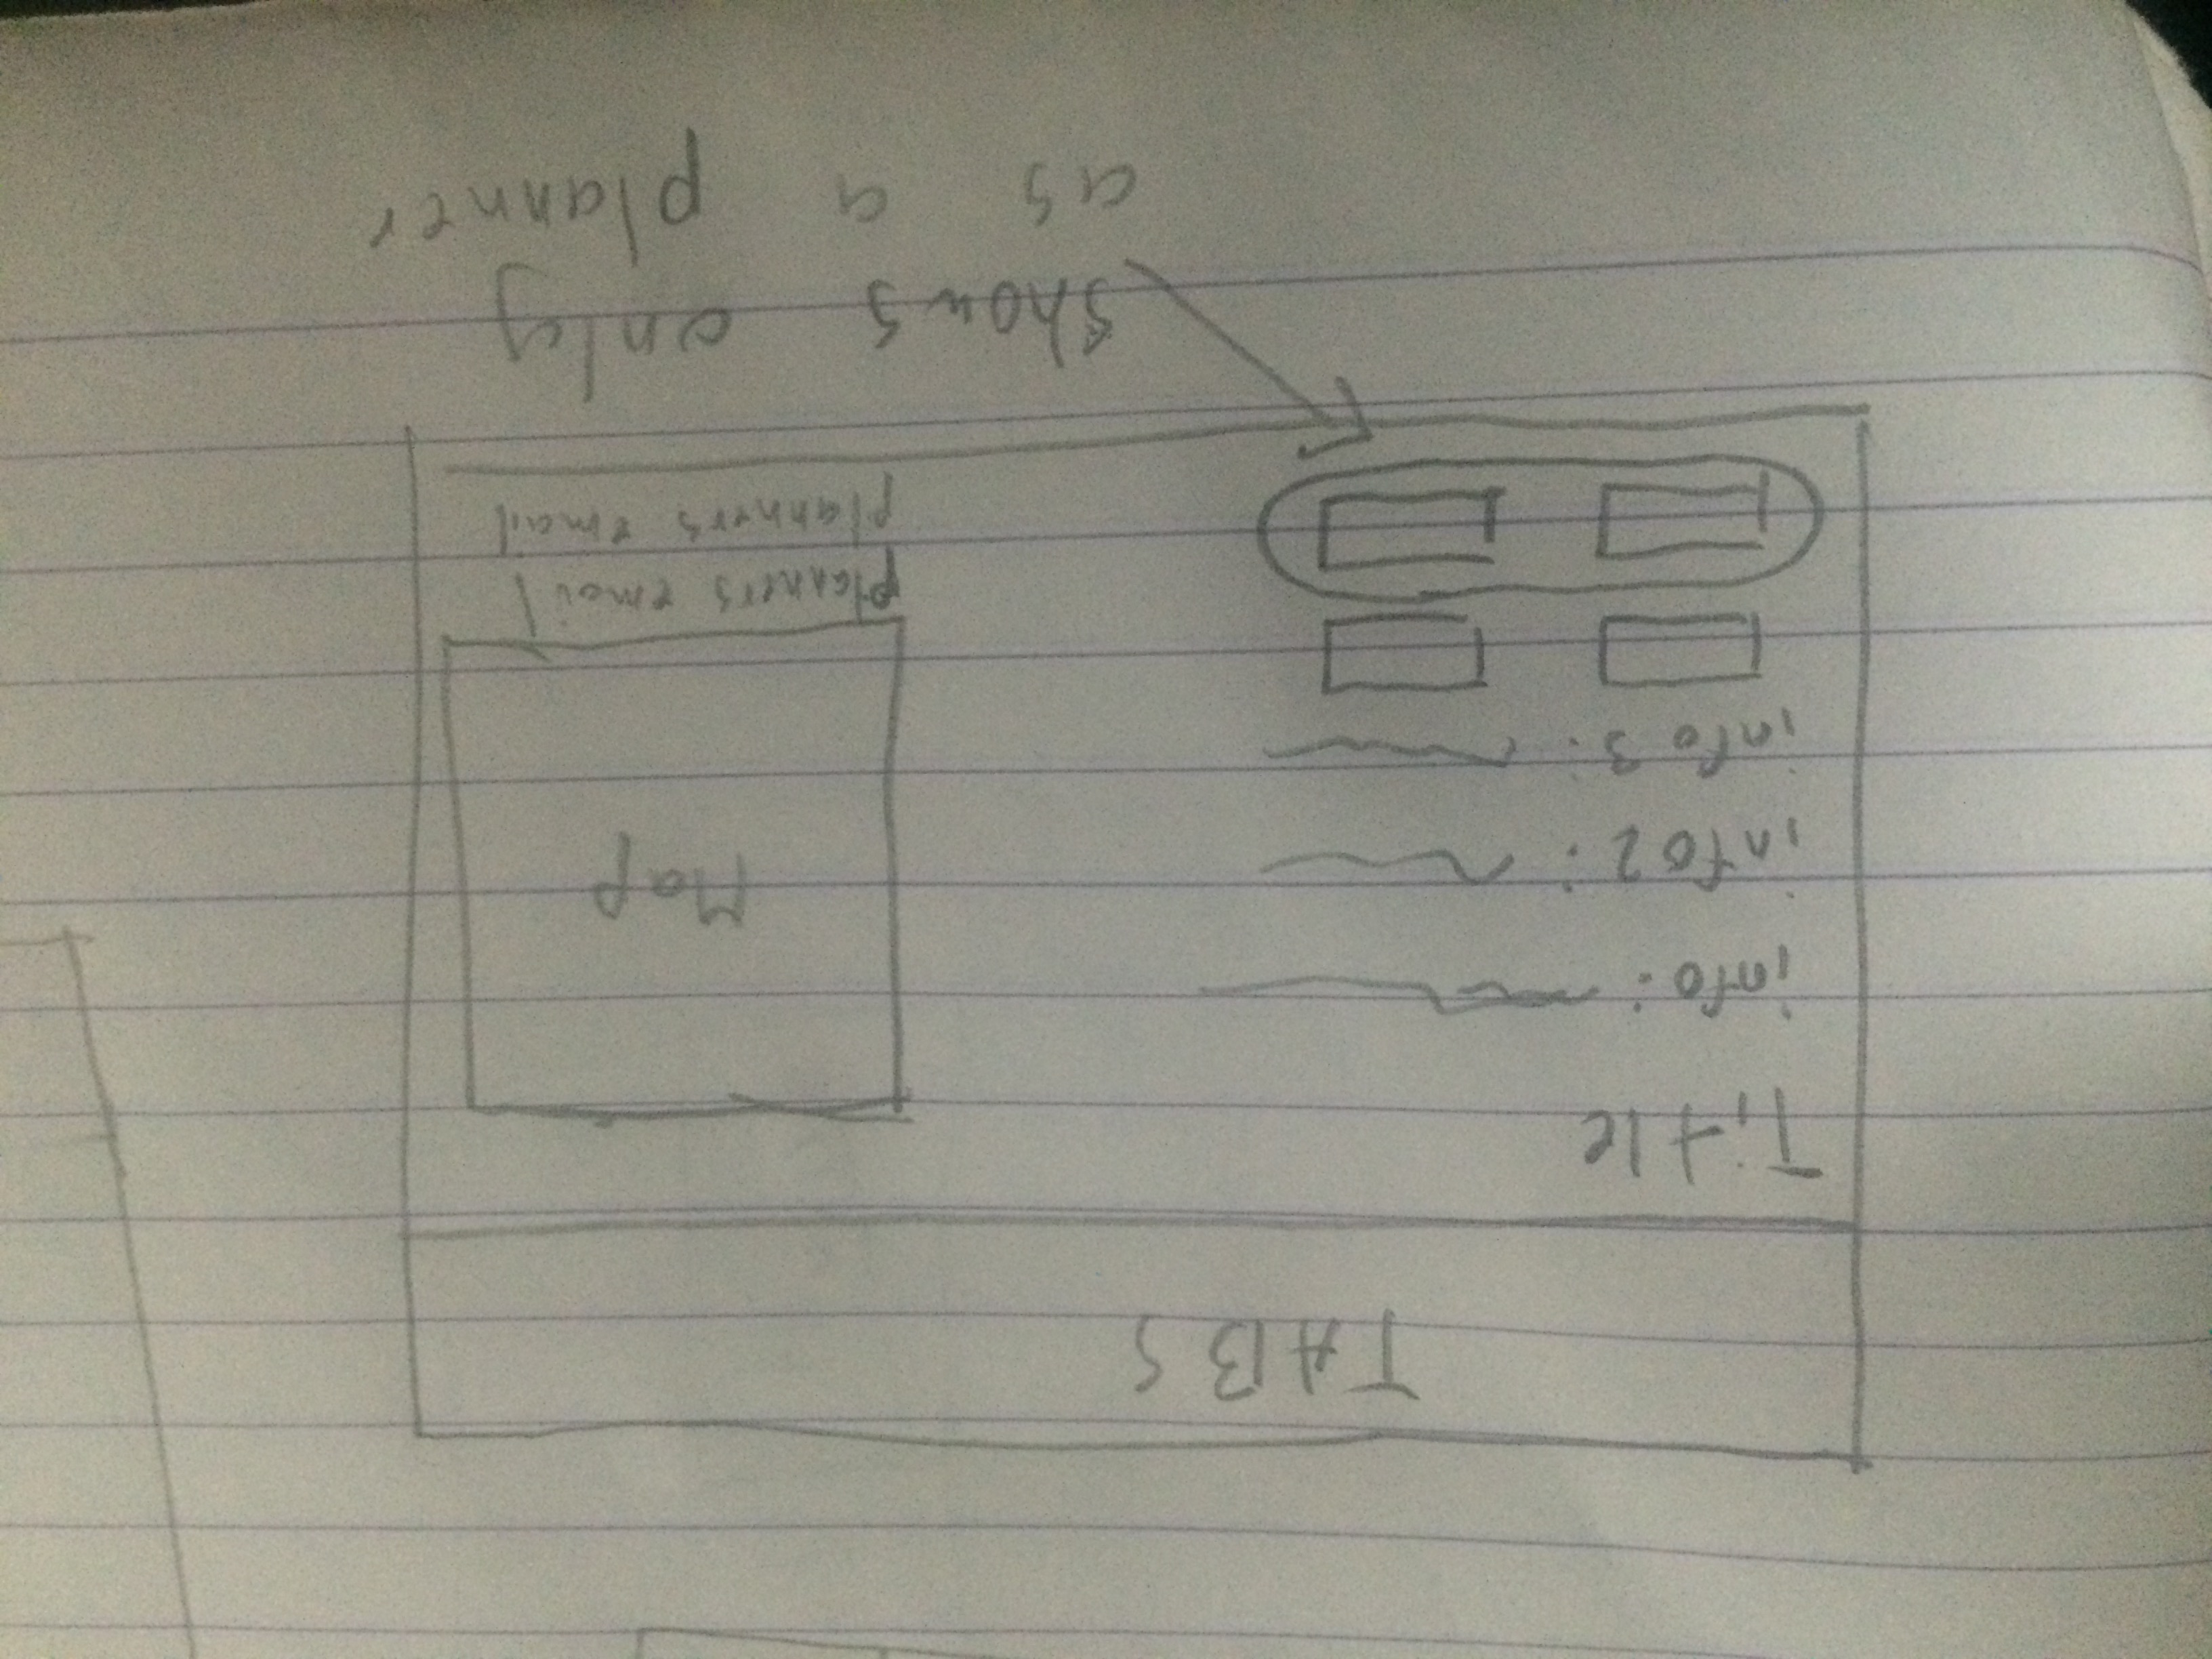 TABS
Title
info:
info2:
info 3:
Map
planners email
planners email
shows only
as a planner